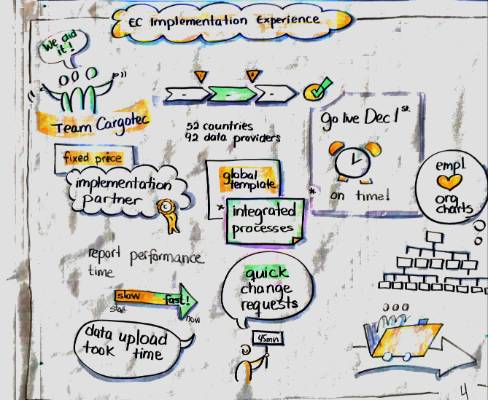 EC Implementation Experience
We did
it!
Team Cargotec
52 countries
42 data providers
Go live Dec 1st
on time!
fixed price
implementation
partner
global
template
* integrated
processes
*
empl
org
charts
report performance
time
slow
fast!
start
now
quick
change
requests
45min
data upload
took time
4